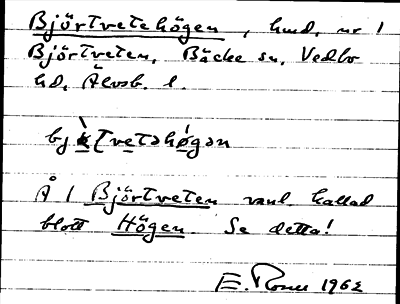 Björtvetehögen, hmd, nr 1
Björtveten, Bäcke sn, Vedbo
hd, Älvsb. l.
Å 1 Björtveten vanl. kallad
blott Högen. Se detta!
E. Rosell 1962